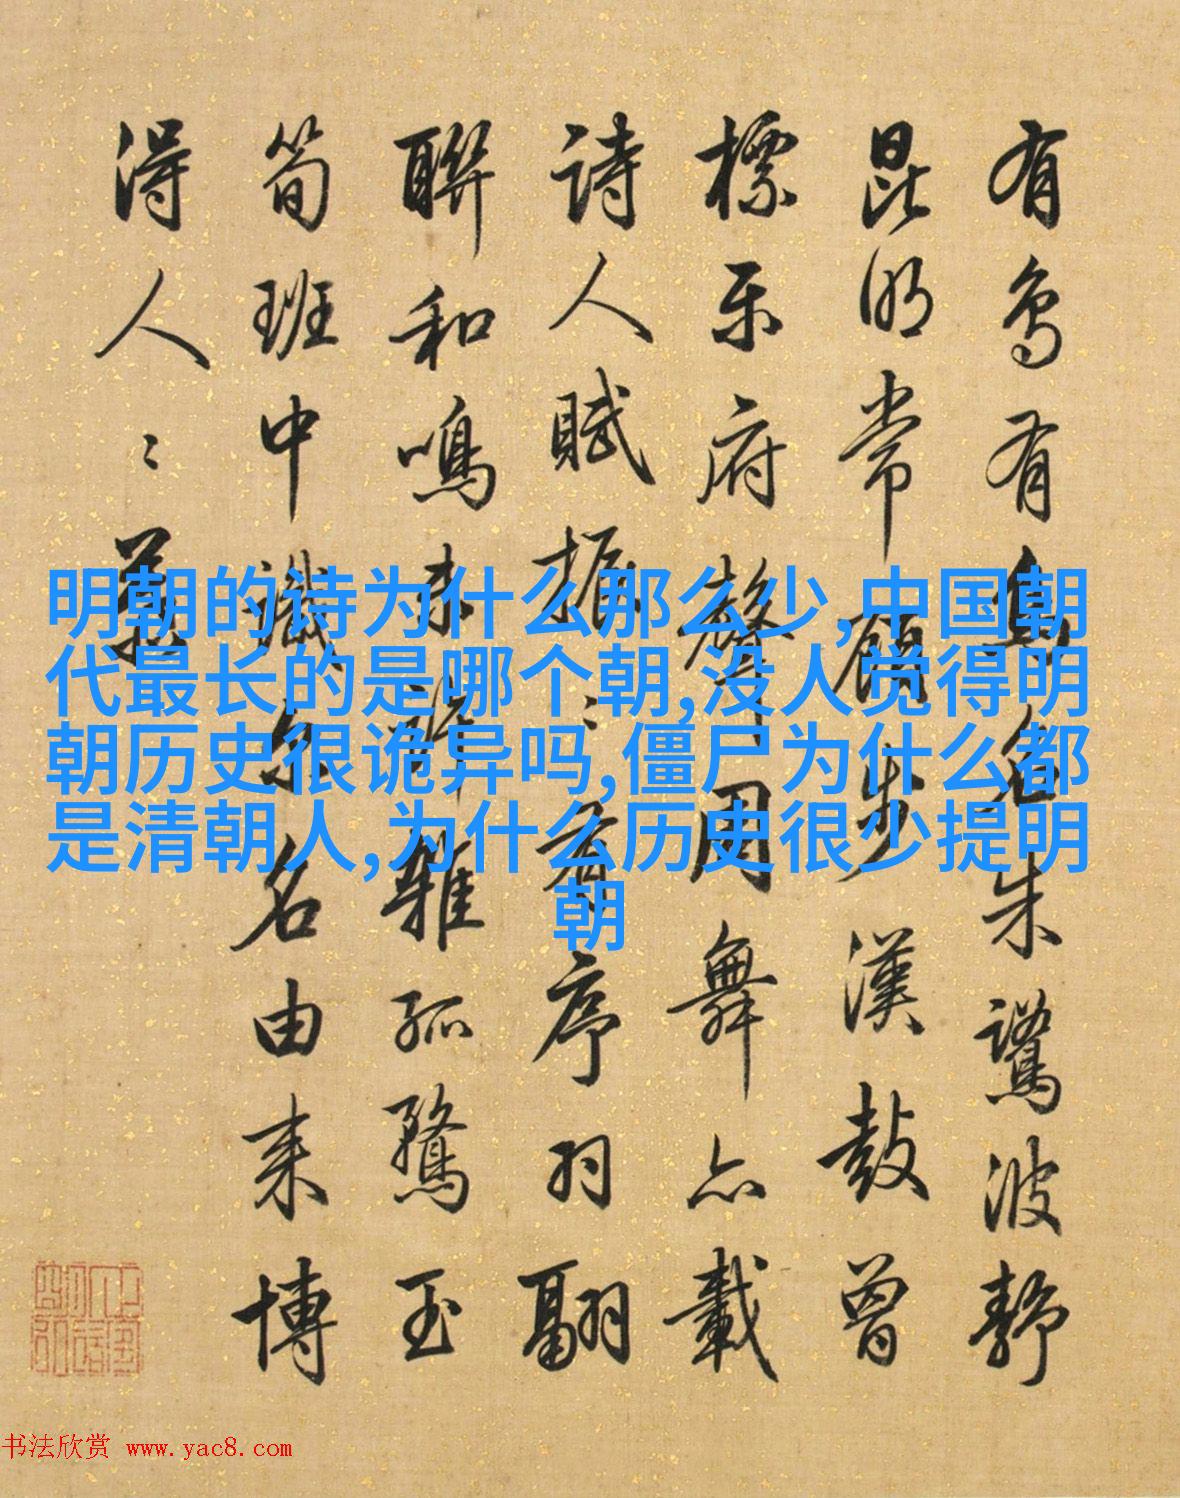 有鳥有鳥名朱鷺波靜
昆明常顧步漢鼓曾
標樂府聲周舞亦載
詩人賦振〻有序羽翮
聯和鳴未許雜孤鶩玉
筍班中識爾名由來博
得人〻慕
明朝的诗为什么那么少,中国朝
代最长的是哪个朝,没人觉得明
朝历史很诡异吗,僵尸为什么都
是清朝人,为什么历史很少提明
朝
书法欣赏 www.yac8.com